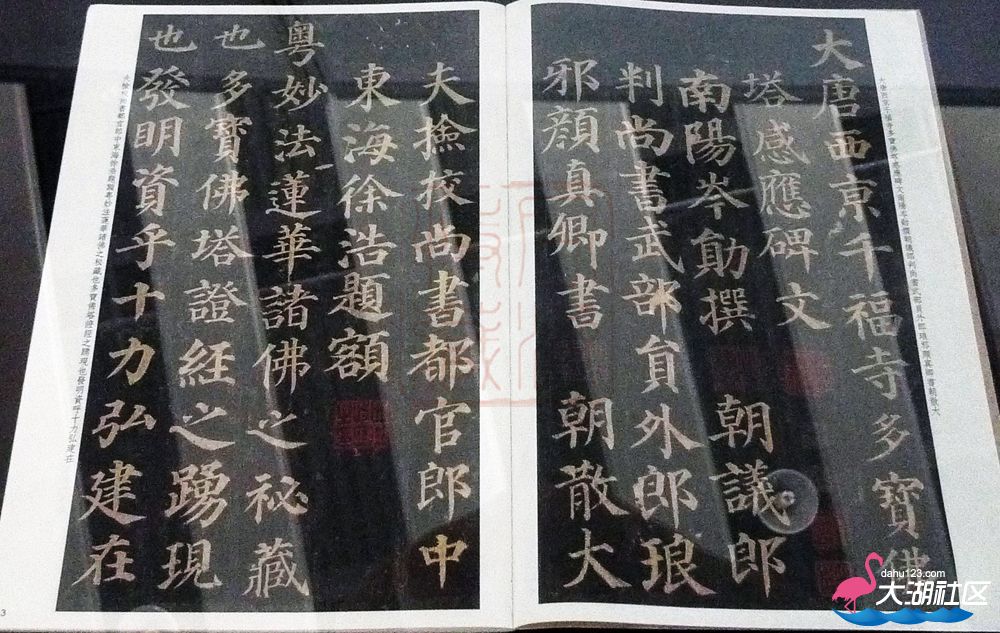 大唐西京千福寺多寶佛
塔感應碑文
南陽岑勛撰 朝議郎
判尚書武部負外郎琅
邪顏真卿書 朝散大
夫撿挍尚書都官郎中
東海徐浩題額
粵妙法蓮華諸佛之祕藏
也多寶佛塔證經之踴現
也發明資乎十力弘建在
3
dahu123.com
大湖社区